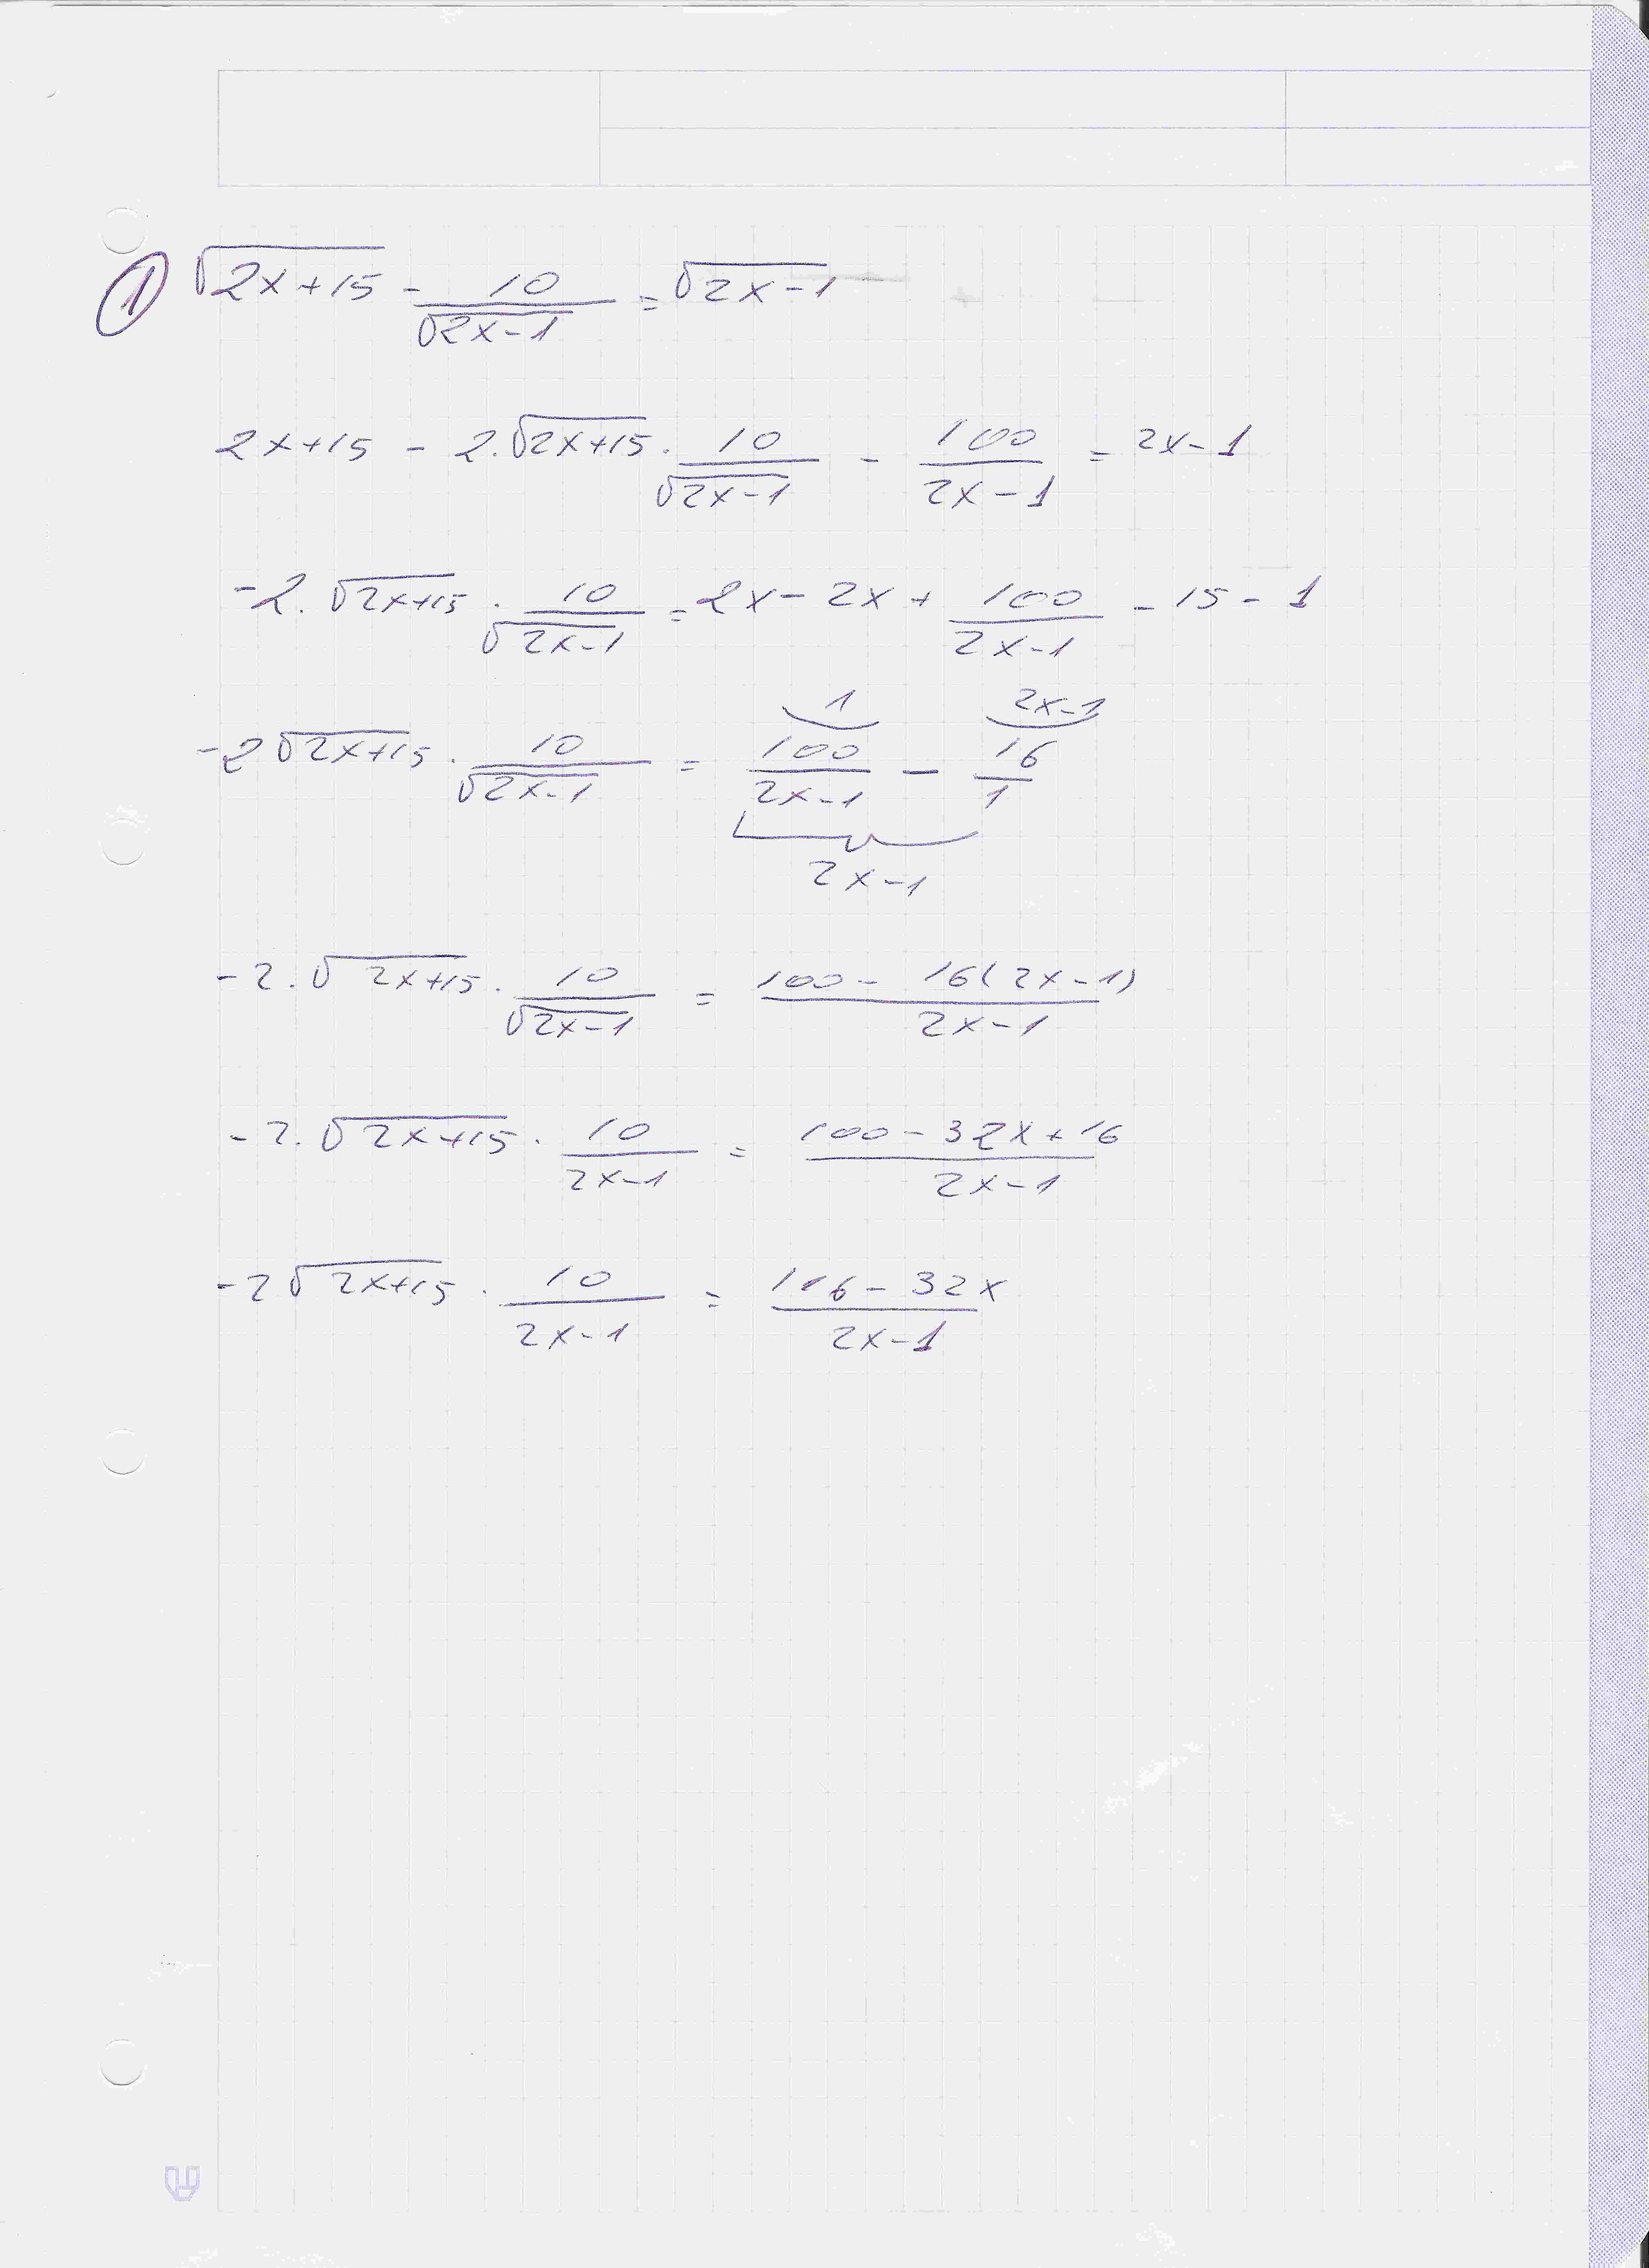 ① √(2x+15) - 10/√(2x-1) = √(2x-1)
2x+15 - 2·√(2x+15) · 10/√(2x-1) - 100/(2x-1) = 2x-1
-2·√(2x+15) · 10/√(2x-1) = 2x - 2x + 100/(2x-1) - 15 - 1
1 2x-1
-2√(2x+15) · 10/√(2x-1) = 100/(2x-1) - 16/1
2x-1
-2·√(2x+15) · 10/√(2x-1) = (100 - 16(2x-1))/(2x-1)
-2·√(2x+15) · 10/(2x-1) = (100 - 32x + 16)/(2x-1)
-2√(2x+15) · 10/(2x-1) = (116 - 32x)/(2x-1)